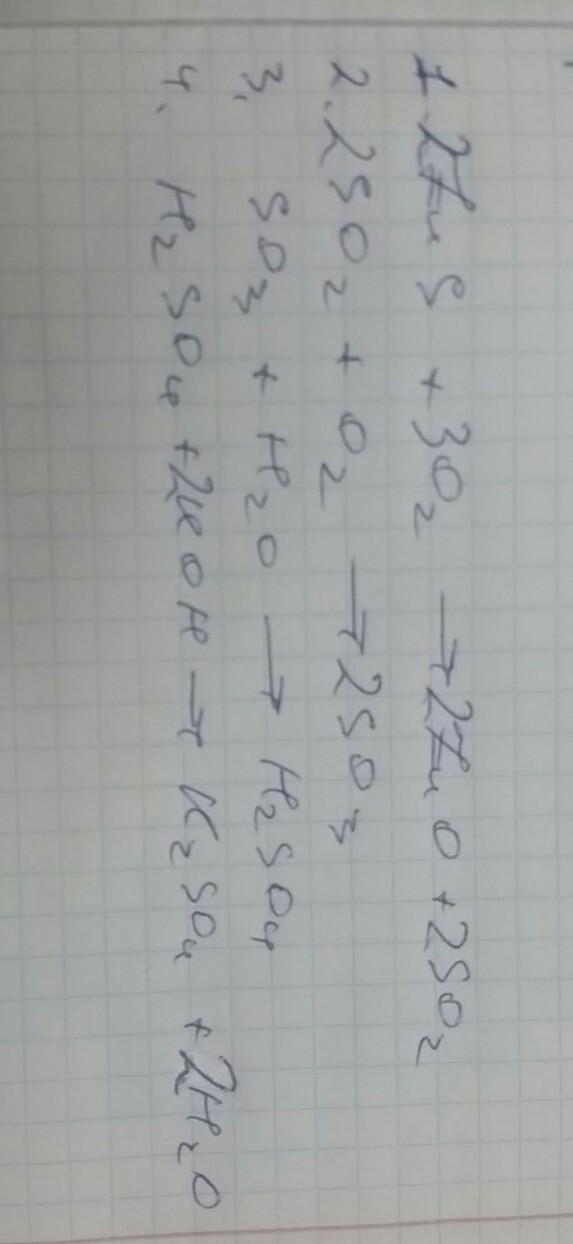 1. 2ZnS + 3O₂ → 2ZnO + 2SO₂
2. 2SO₂ + O₂ → 2SO₃
3. SO₃ + H₂O → H₂SO₄
4. H₂SO₄ + 2KOH → K₂SO₄ + 2H₂O